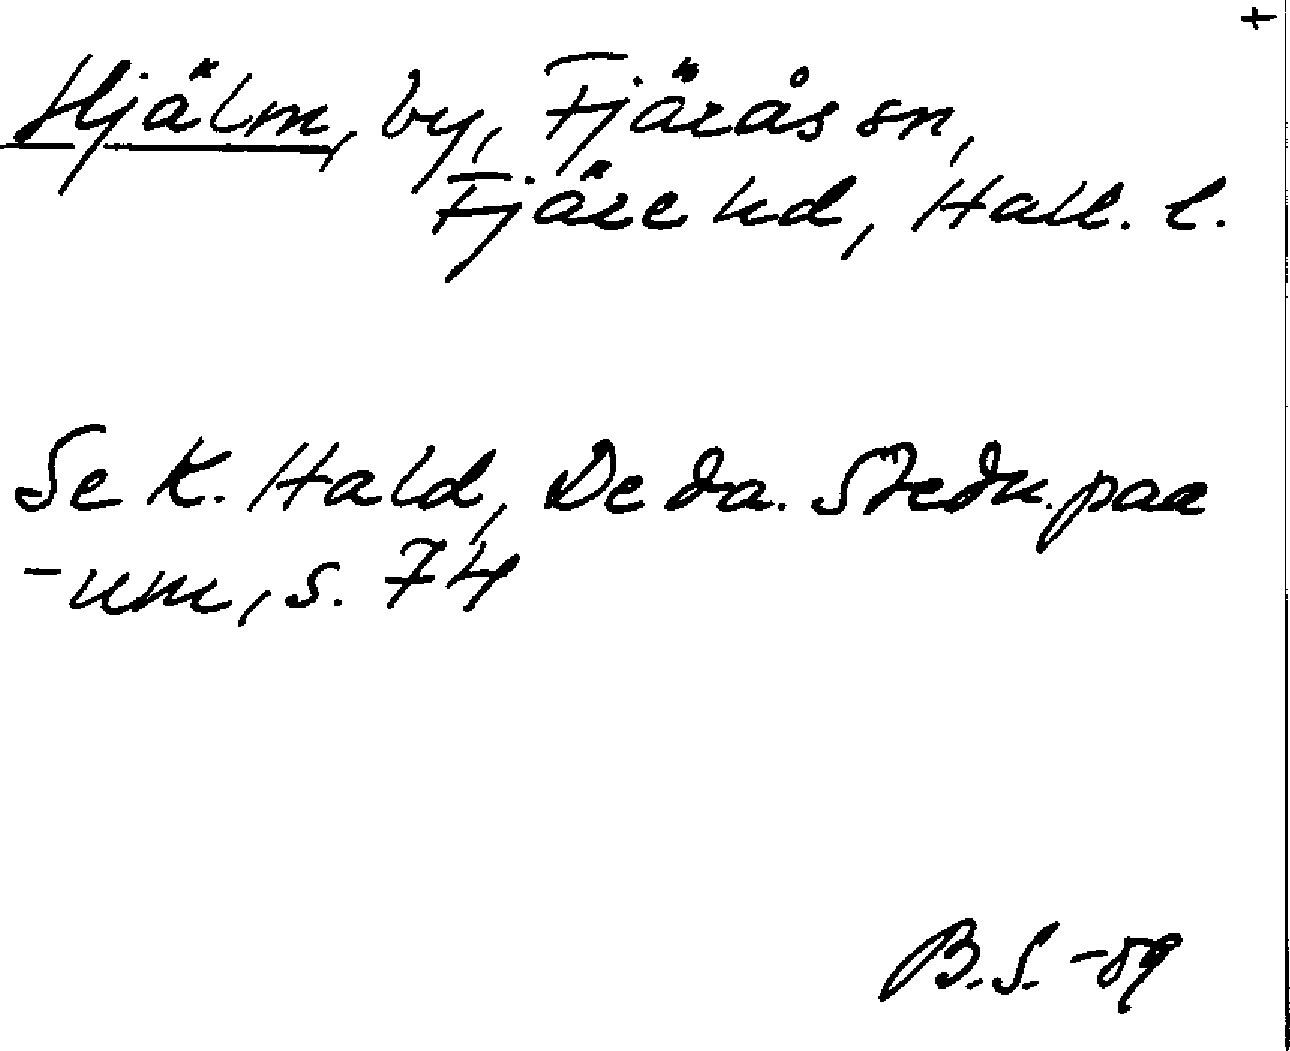 +
Hjälm, by, Fjärås sn,
Fjäre hd, Hall. l.
Se K. Hald, De da. Stedn. paa
-um, s. 74
B.S. -59